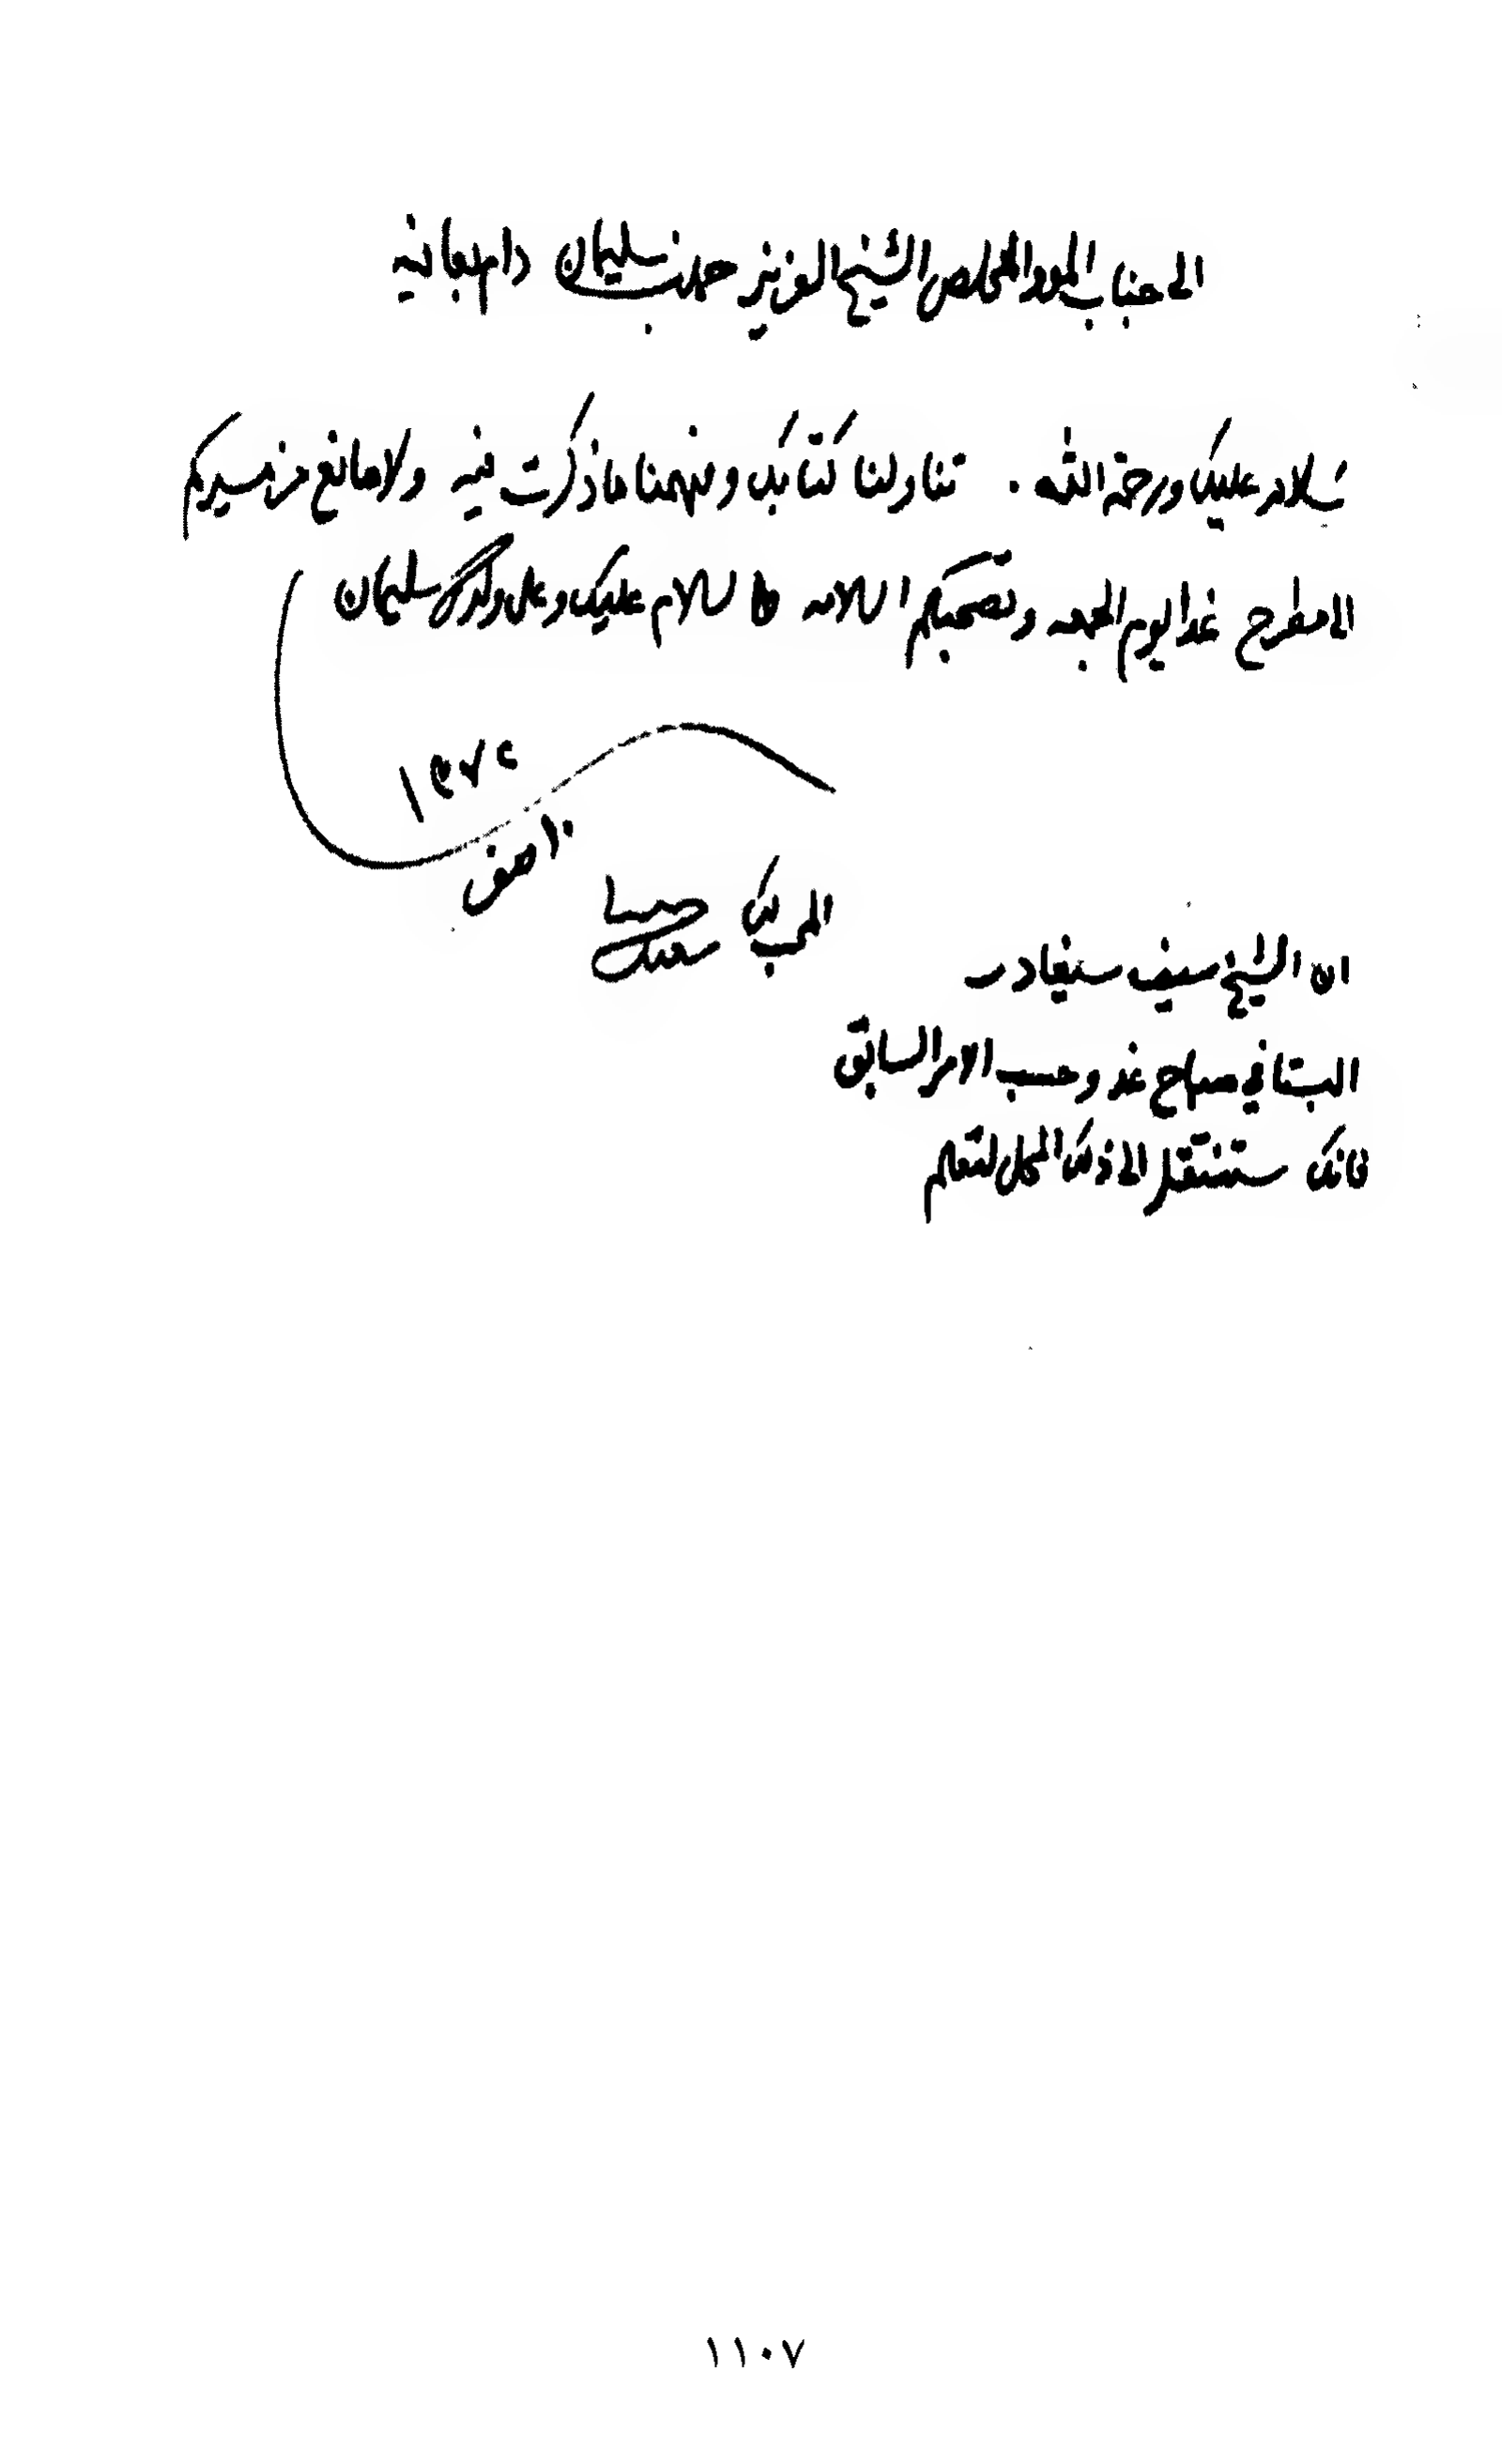 الى جناب المود المخلص الشيخ العزيز حمد بن سليمان دام بعافيه
سلام عليك ورحمة الله . تناولنا كتابك وفهمنا ما ذكرت فيه ولا مانع من مسيركم
الى مطرح غدا يوم الجمعه وتصحبكم السلامه والسلام عليك وعلى ولدك سليمان
١٣٧٤
١٠ صفر
المحب لك
سعيد
ان الشيخ سيف سيغادر
البستاني صباح غد وحسب الامر السابق
فانك ستنتقل الى ذلك المحل لتعلم
١١٠٧